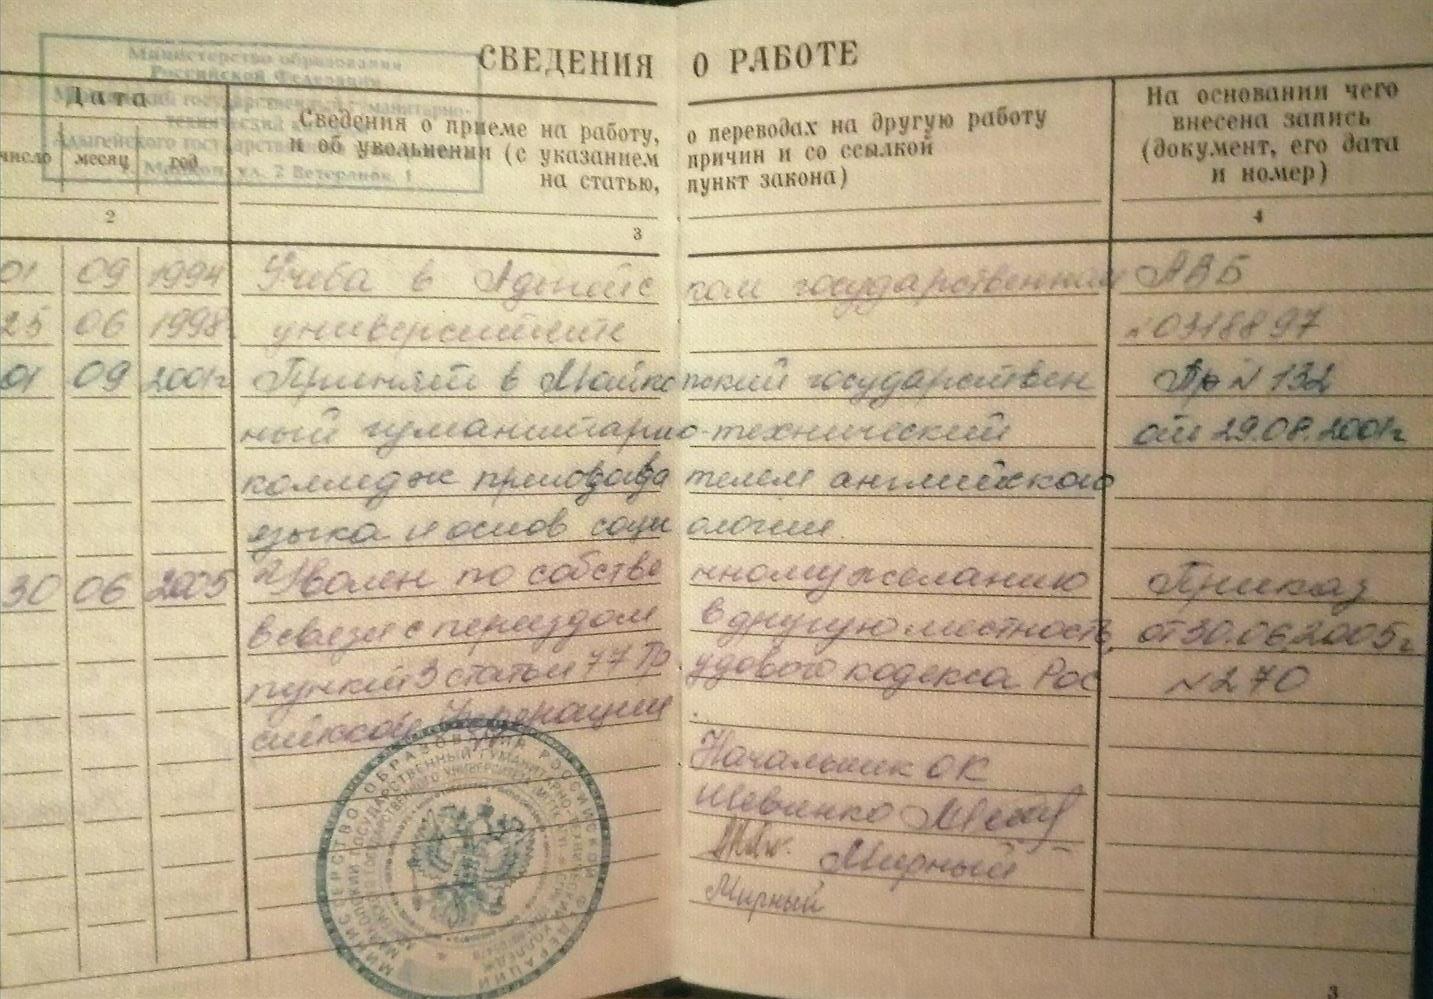 СВЕДЕНИЯ О РАБОТЕ
Министерство образования
Российской Федерации
государственный гуманитарно-
технический
Адыгейского
ул. 2 Ветеранов, 1
Дата
число месяц год
Сведения о приеме на работу, о переводах на другую работу
и об увольнении (с указанием причин и со ссылкой
на статью, пункт закона)
На основании чего
внесена запись
(документ, его дата
и номер)
2 3 4
01 09 1994 Учеба в Адыгейском государственном АВБ
25 06 1998 университете №0318897
01 09 2001г Принят в Майкопский государствен Пр № 132
ный гуманитарно-технический от 29.08.2001г
колледж преподавателем английского
языка и основ социологии.
30 06 2005 Уволен по собственному желанию Приказ
в связи с переездом в другую местность, от 30.06.2005г
пункт 3 статьи 77 Трудового кодекса Рос №270
сийской Федерации.
Начальник ОК
Шевченко
Мирный
Мирный
МИНИСТЕРСТВО ОБРАЗОВАНИЯ РОССИЙСКОЙ ФЕДЕРАЦИИ
МАЙКОПСКИЙ ГОСУДАРСТВЕННЫЙ ГУМАНИТАРНО-ТЕХНИЧЕСКИЙ КОЛЛЕДЖ
3